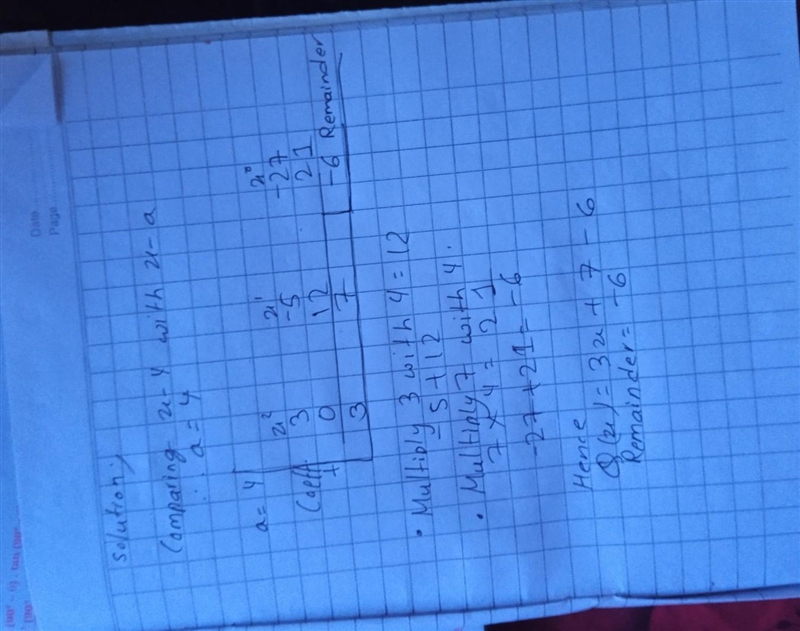 Date
Page
Solution:
Comparing x-4 with x-a
∴ a = 4
a = 4 x² x¹ x⁰
Coeff. 3 -5 -27
+ 0 12 21
3 7 -6 Remainder
• Multiply 3 with 4 = 12
-5+12
• Multiply 7 with 4.
7 x 4 = 21
-27+21 = -6
Hence
Q(x) = 3x + 7 - 6
Remainder = -6